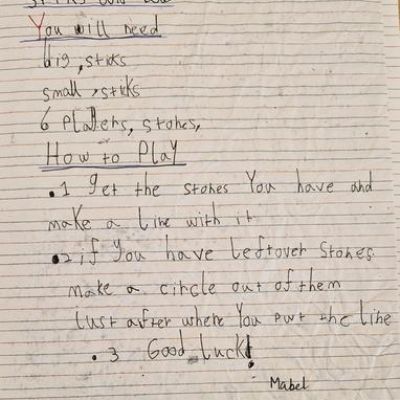 You will need
big, sticks
small, sticks
6 Players, stones,
How to Play
.1 get the stones You have and
make a line with it
.2 if You have Leftover Stones.
make a circle out of them
Just after where You put the line
.3 Good Luck!
Mabel